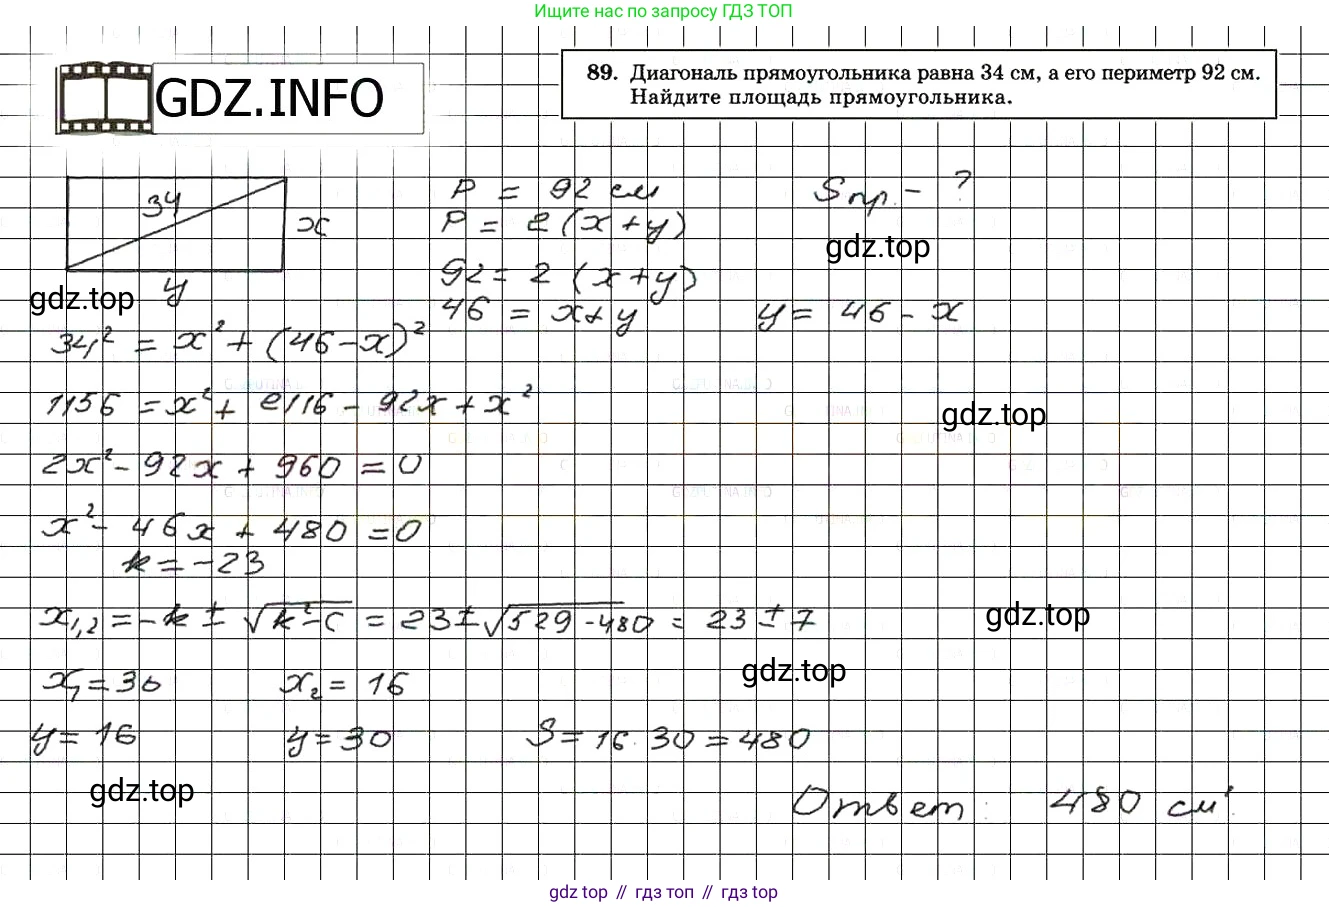 Ищите нас по запросу ГДЗ ТОП
GDZ.INFO
89. Диагональ прямоугольника равна 34 см, а его периметр 92 см.
Найдите площадь прямоугольника.
34
x
y
P = 92 см
Sпр. - ?
P = 2(x+y)
gdz.top
92 = 2 (x+y)
gdz.top
46 = x+y
y = 46 - x
34² = x² + (46-x)²
1156 = x² + 2116 - 92x + x²
gdz.top
2x² - 92x + 960 = 0
x² - 46x + 480 = 0
k = -23
x1,2 = -k ± √k²-c = 23 ± √529-480 = 23 ± 7
gdz.top
gdz.top
x1 = 30
x2 = 16
y = 16
y = 30
S = 16 · 30 = 480
gdz.top
Ответ: 480 см².
gdz top // гдз топ // gdz top